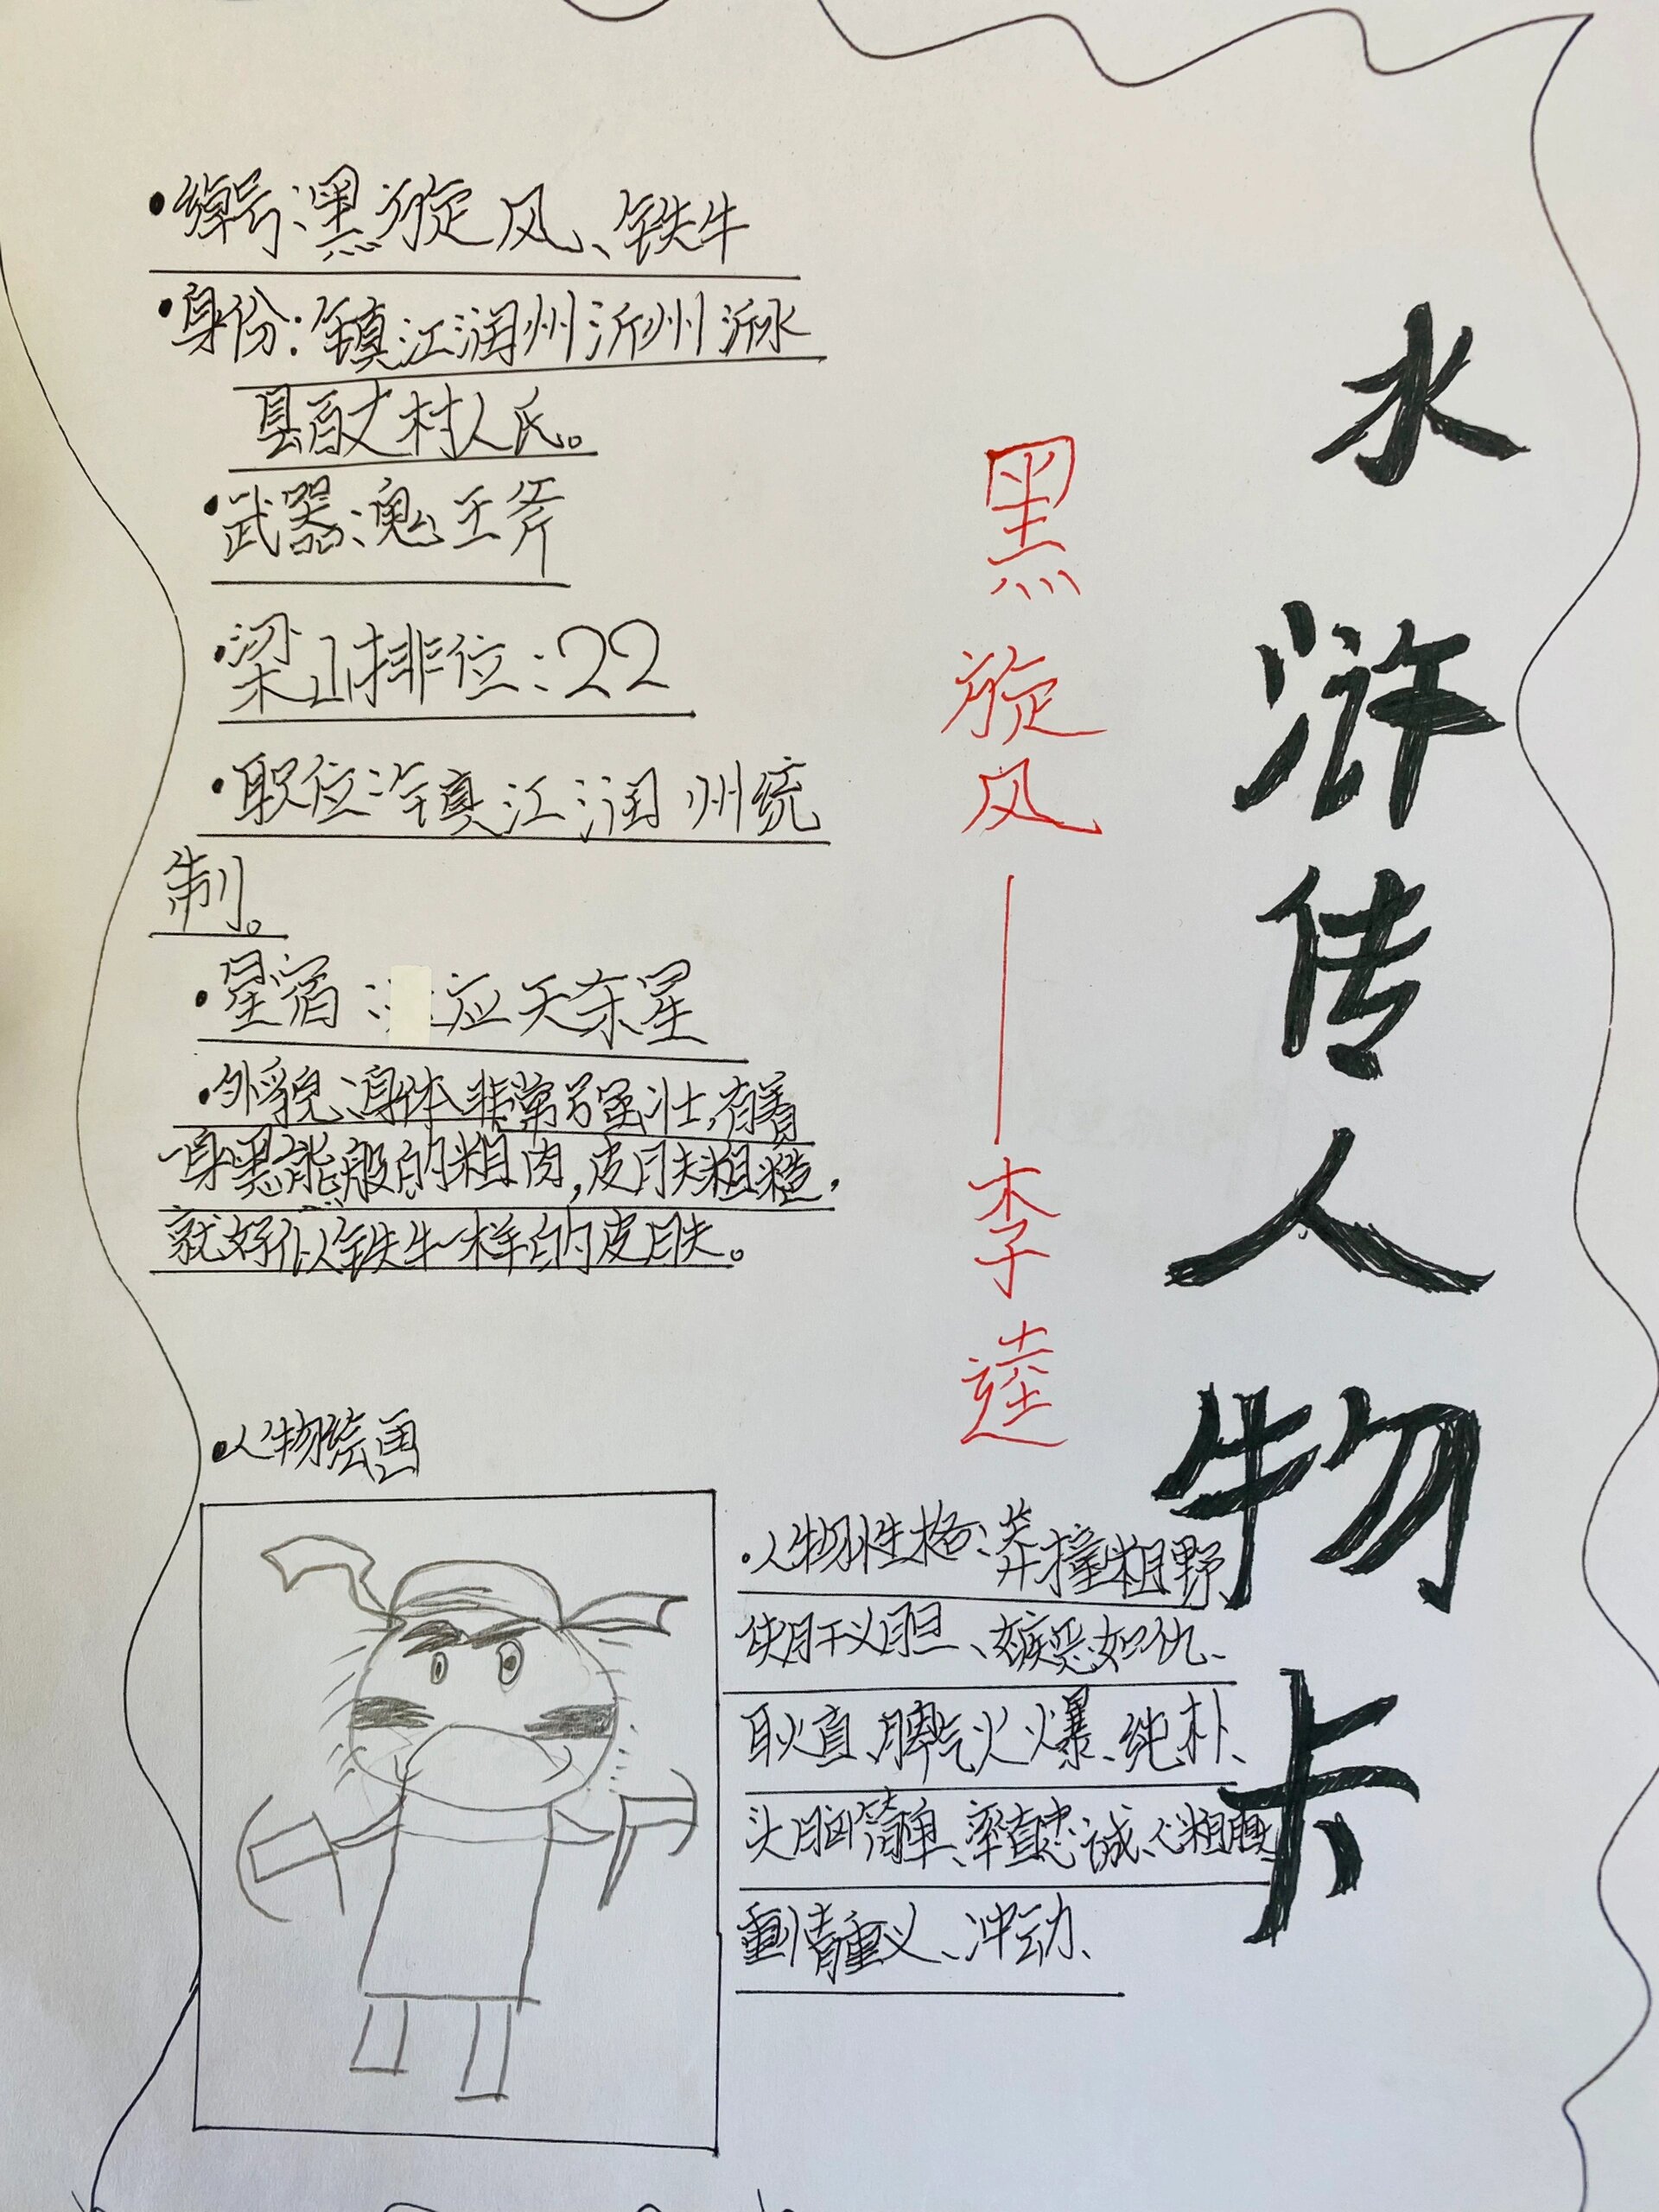 水浒传人物卡
黑旋风——李逵
•绰号:黑旋风、铁牛
•身份:镇江润州沂州沂水
县百丈村人氏。
•武器:鬼王斧
•梁山排位:22
•职位:镇江润州统
制。
•星宿:应天杀星
•外貌:身体非常强壮,有着
一身黑熊般的粗肉,皮肤粗糙,
就好似铁牛一样的皮肤。
•人物绘画
•人物性格:莽撞粗野、
侠肝义胆、嫉恶如仇、
耿直、脾气火爆、纯朴、
头脑简单、率直忠诚、心粗胆大
重情重义、冲动、